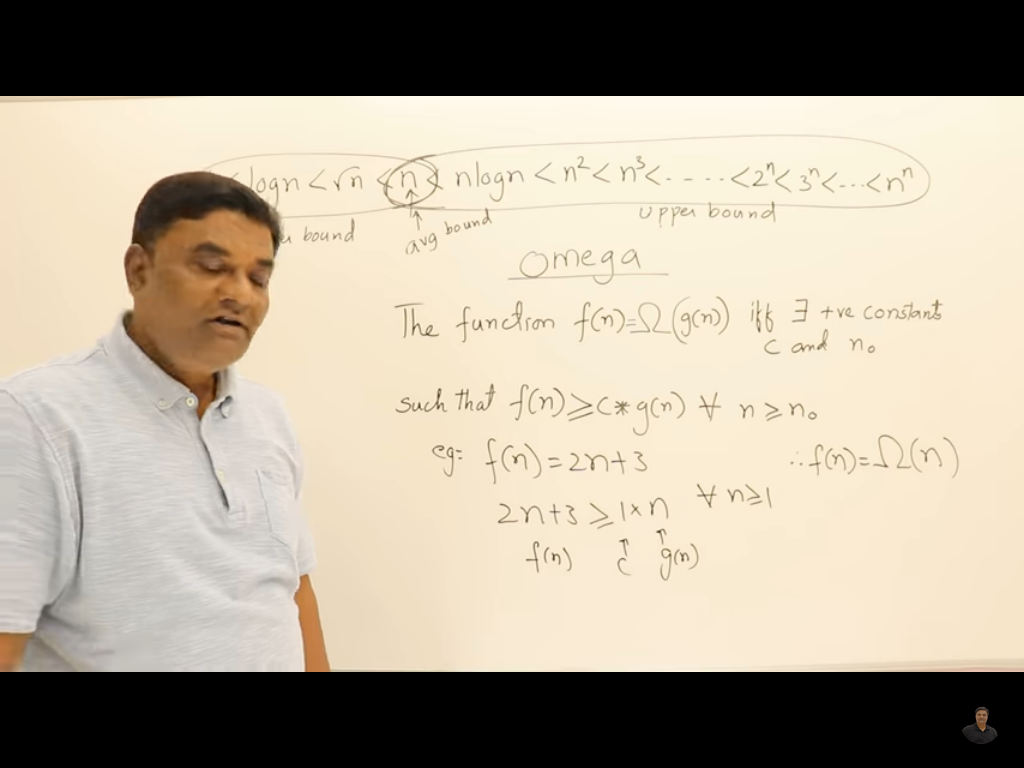 logn < √n < n < nlogn < n² < n³ < - - - - < 2ⁿ < 3ⁿ < ... < nⁿ
bound avg bound upper bound
Omega
The function f(n)=Ω(g(n)) iff ∃ +ve constants
c and n₀
such that f(n) ≥ c*g(n) ∀ n ≥ n₀
eg: f(n) = 2n+3 ∴ f(n)=Ω(n)
2n+3 ≥ 1×n ∀ n≥1
f(n) ↑ c ↑ g(n)